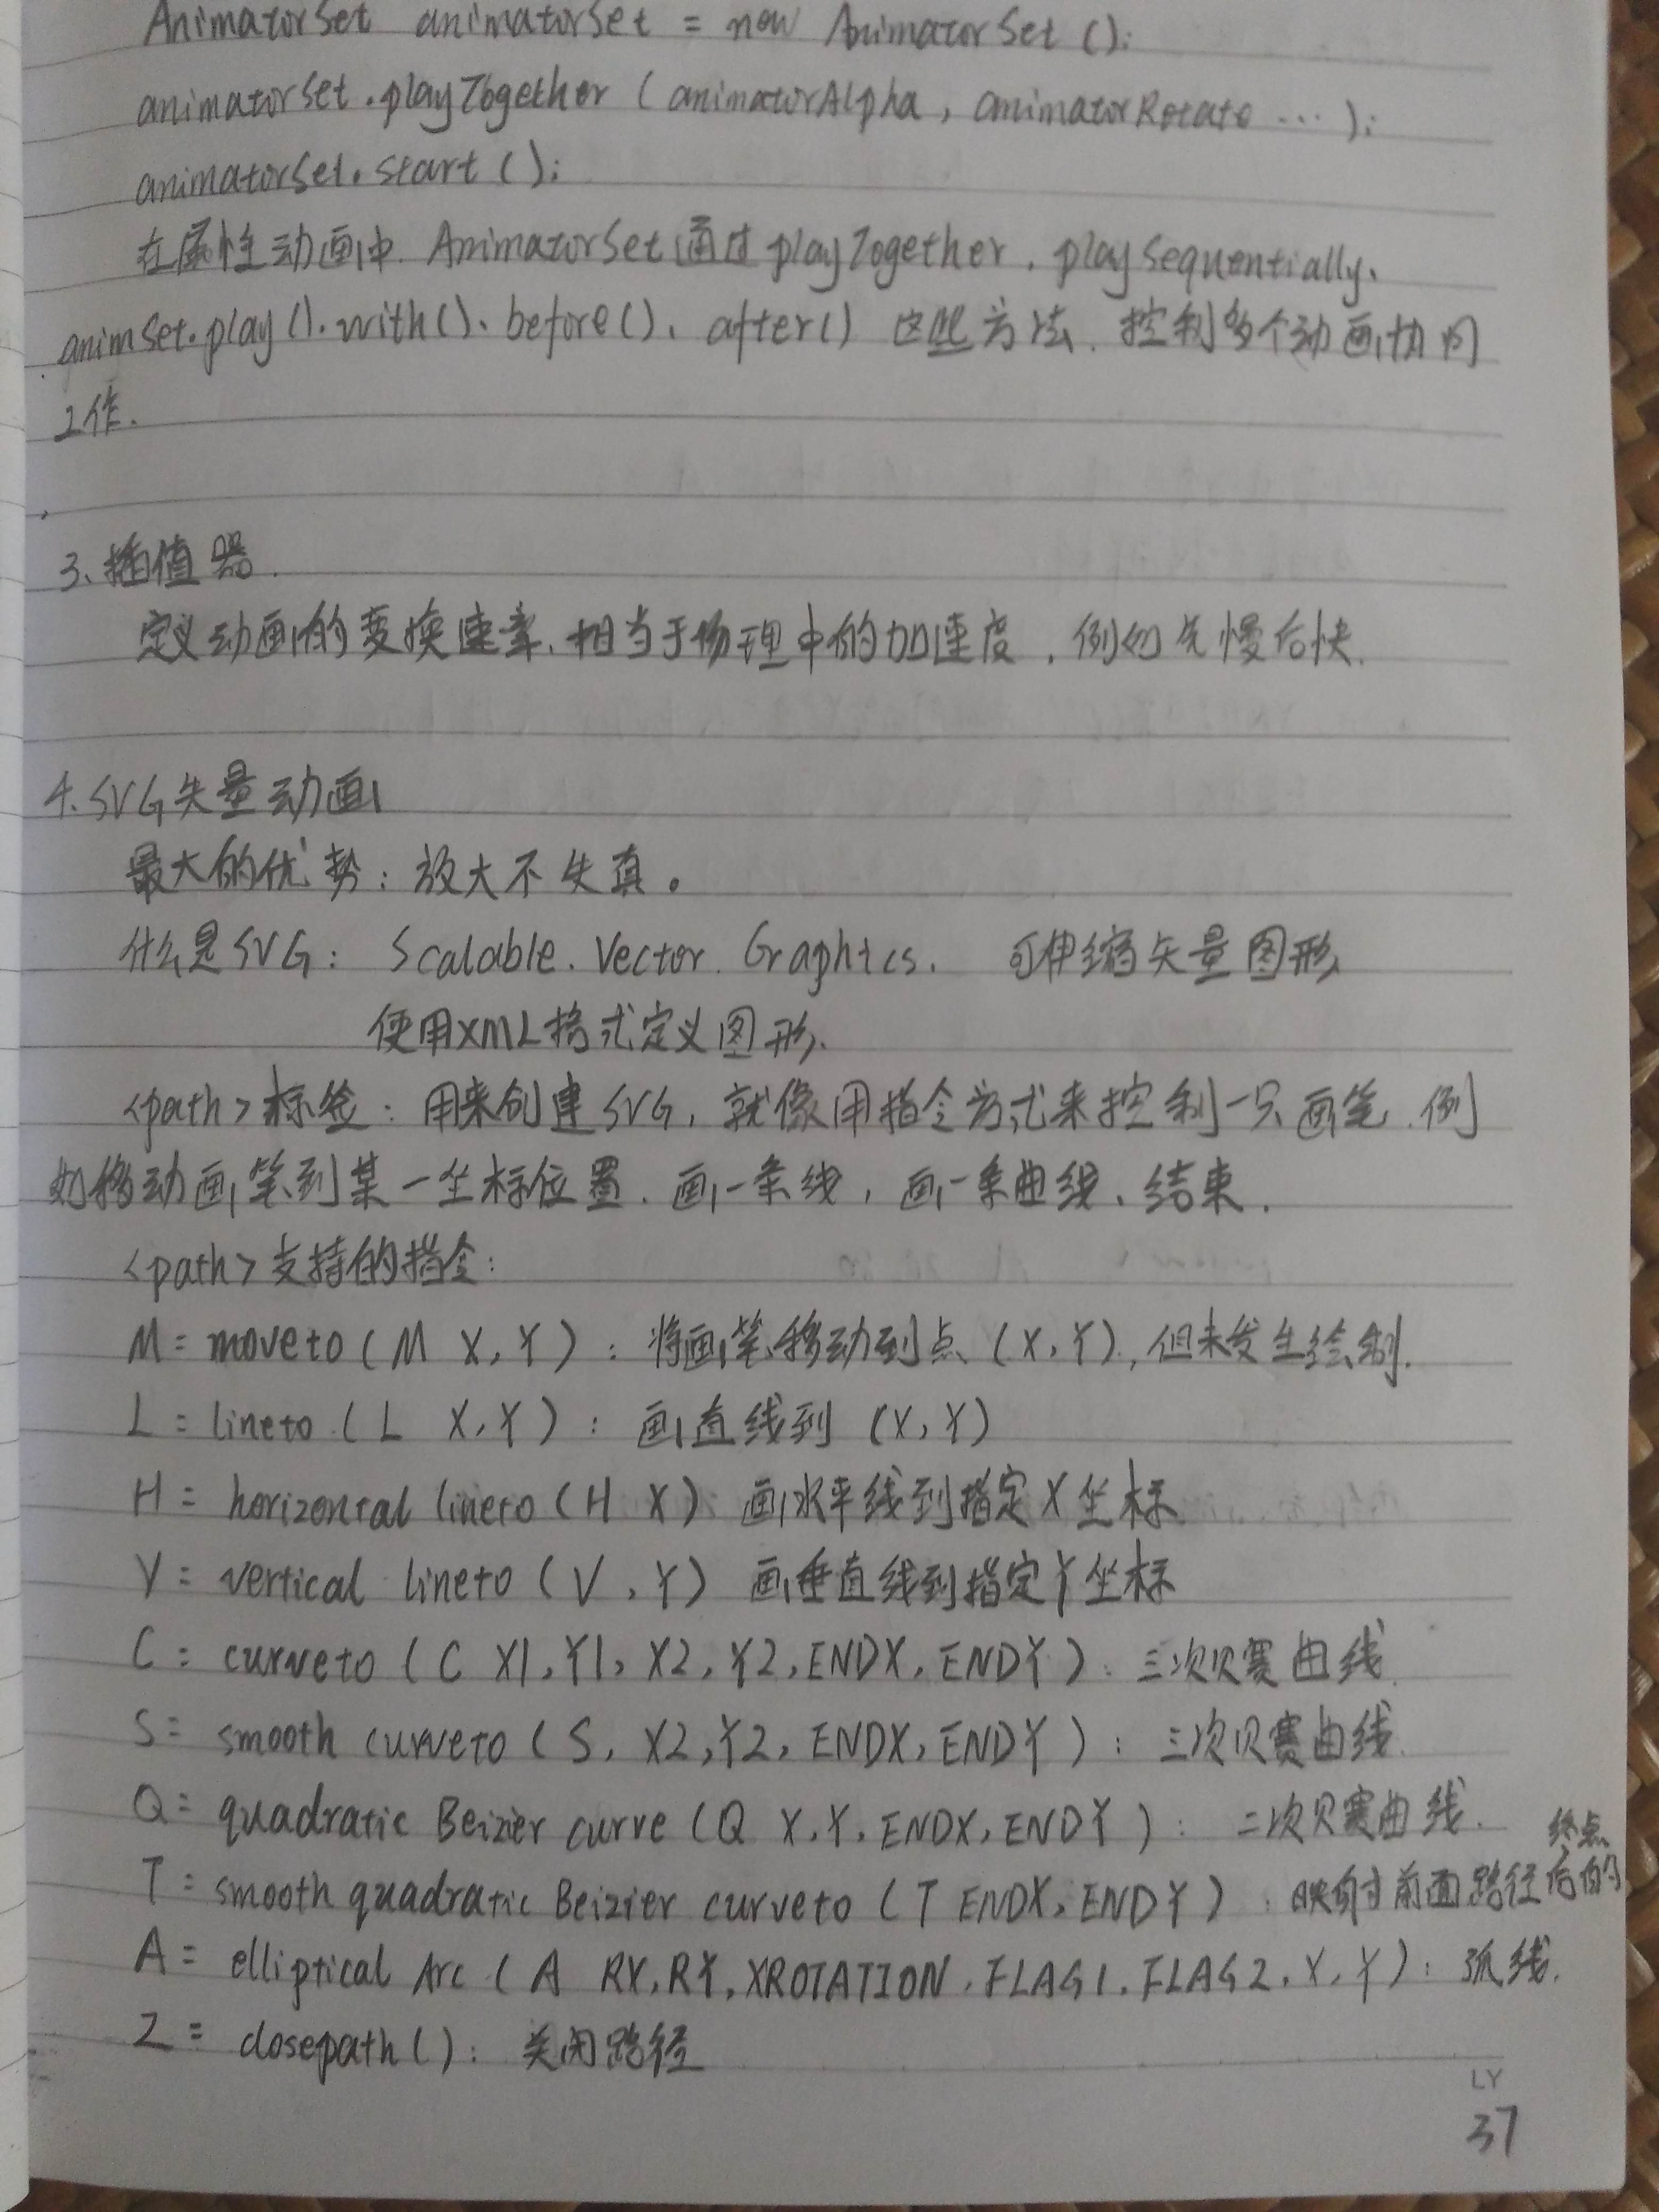 AnimatorSet animatorSet = new AnimatorSet ();
animatorSet.playTogether ( animatorAlpha, animatorRotate ··· );
animatorSet.start ();
在属性动画中. AnimatorSet通过playTogether. playSequentially.
animSet.play().with()、before()、after() 这些方法. 控制多个动画协同
工作.
3、插值器.
定义动画的变换速率、相当于物理中的加速度. 例如先慢后快.
4.SVG矢量动画
最大的优势: 放大不失真。
什么是SVG: Scalable. Vector. Graphics. 可伸缩矢量图形
使用XML格式定义图形.
<path>标签: 用来创建SVG, 就像用指令方式来控制一只画笔. 例
如移动画笔到某一坐标位置. 画一条线, 画一条曲线、结束.
<path>支持的指令:
M= moveto ( M X, Y ) : 将画笔移动到点 (X, Y), 但未发生绘制.
L = lineto ( L X, Y ) : 画直线到 (X, Y)
H = horizontal lineto ( H X ) 画水平线到指定X坐标
V = vertical lineto ( V, Y ) 画垂直线到指定Y坐标
C = curveto ( C X1, Y1, X2, Y2, ENDX, ENDY ) : 三次贝赛曲线.
S= smooth curveto ( S, X2, Y2, ENDX, ENDY ) : 三次贝赛曲线.
Q= quadratic Beizier curve ( Q X, Y, ENDX, ENDY ) : 二次贝赛曲线.
T = smooth quadratic Beizier curveto ( T ENDX, ENDY ) : 映射前面路径后的
终点
A= elliptical Arc ( A RX, RY, XROTATION, FLAG1, FLAG2, X, Y ) : 弧线.
Z = closepath ( ) : 关闭路径
LY
37